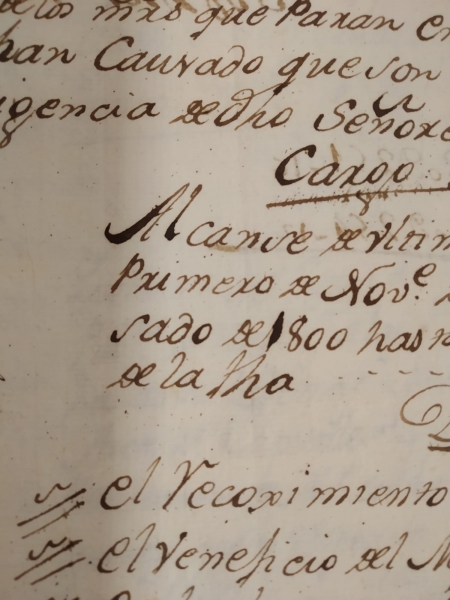 de los mrs que Paran en
han Cauvado que son
igencia de dho Señore
Cargo
Alcanse de Vltim
Primero de Nove
sado de 1800 has
de la fha
el Vecoximiento
el Veneficio del M